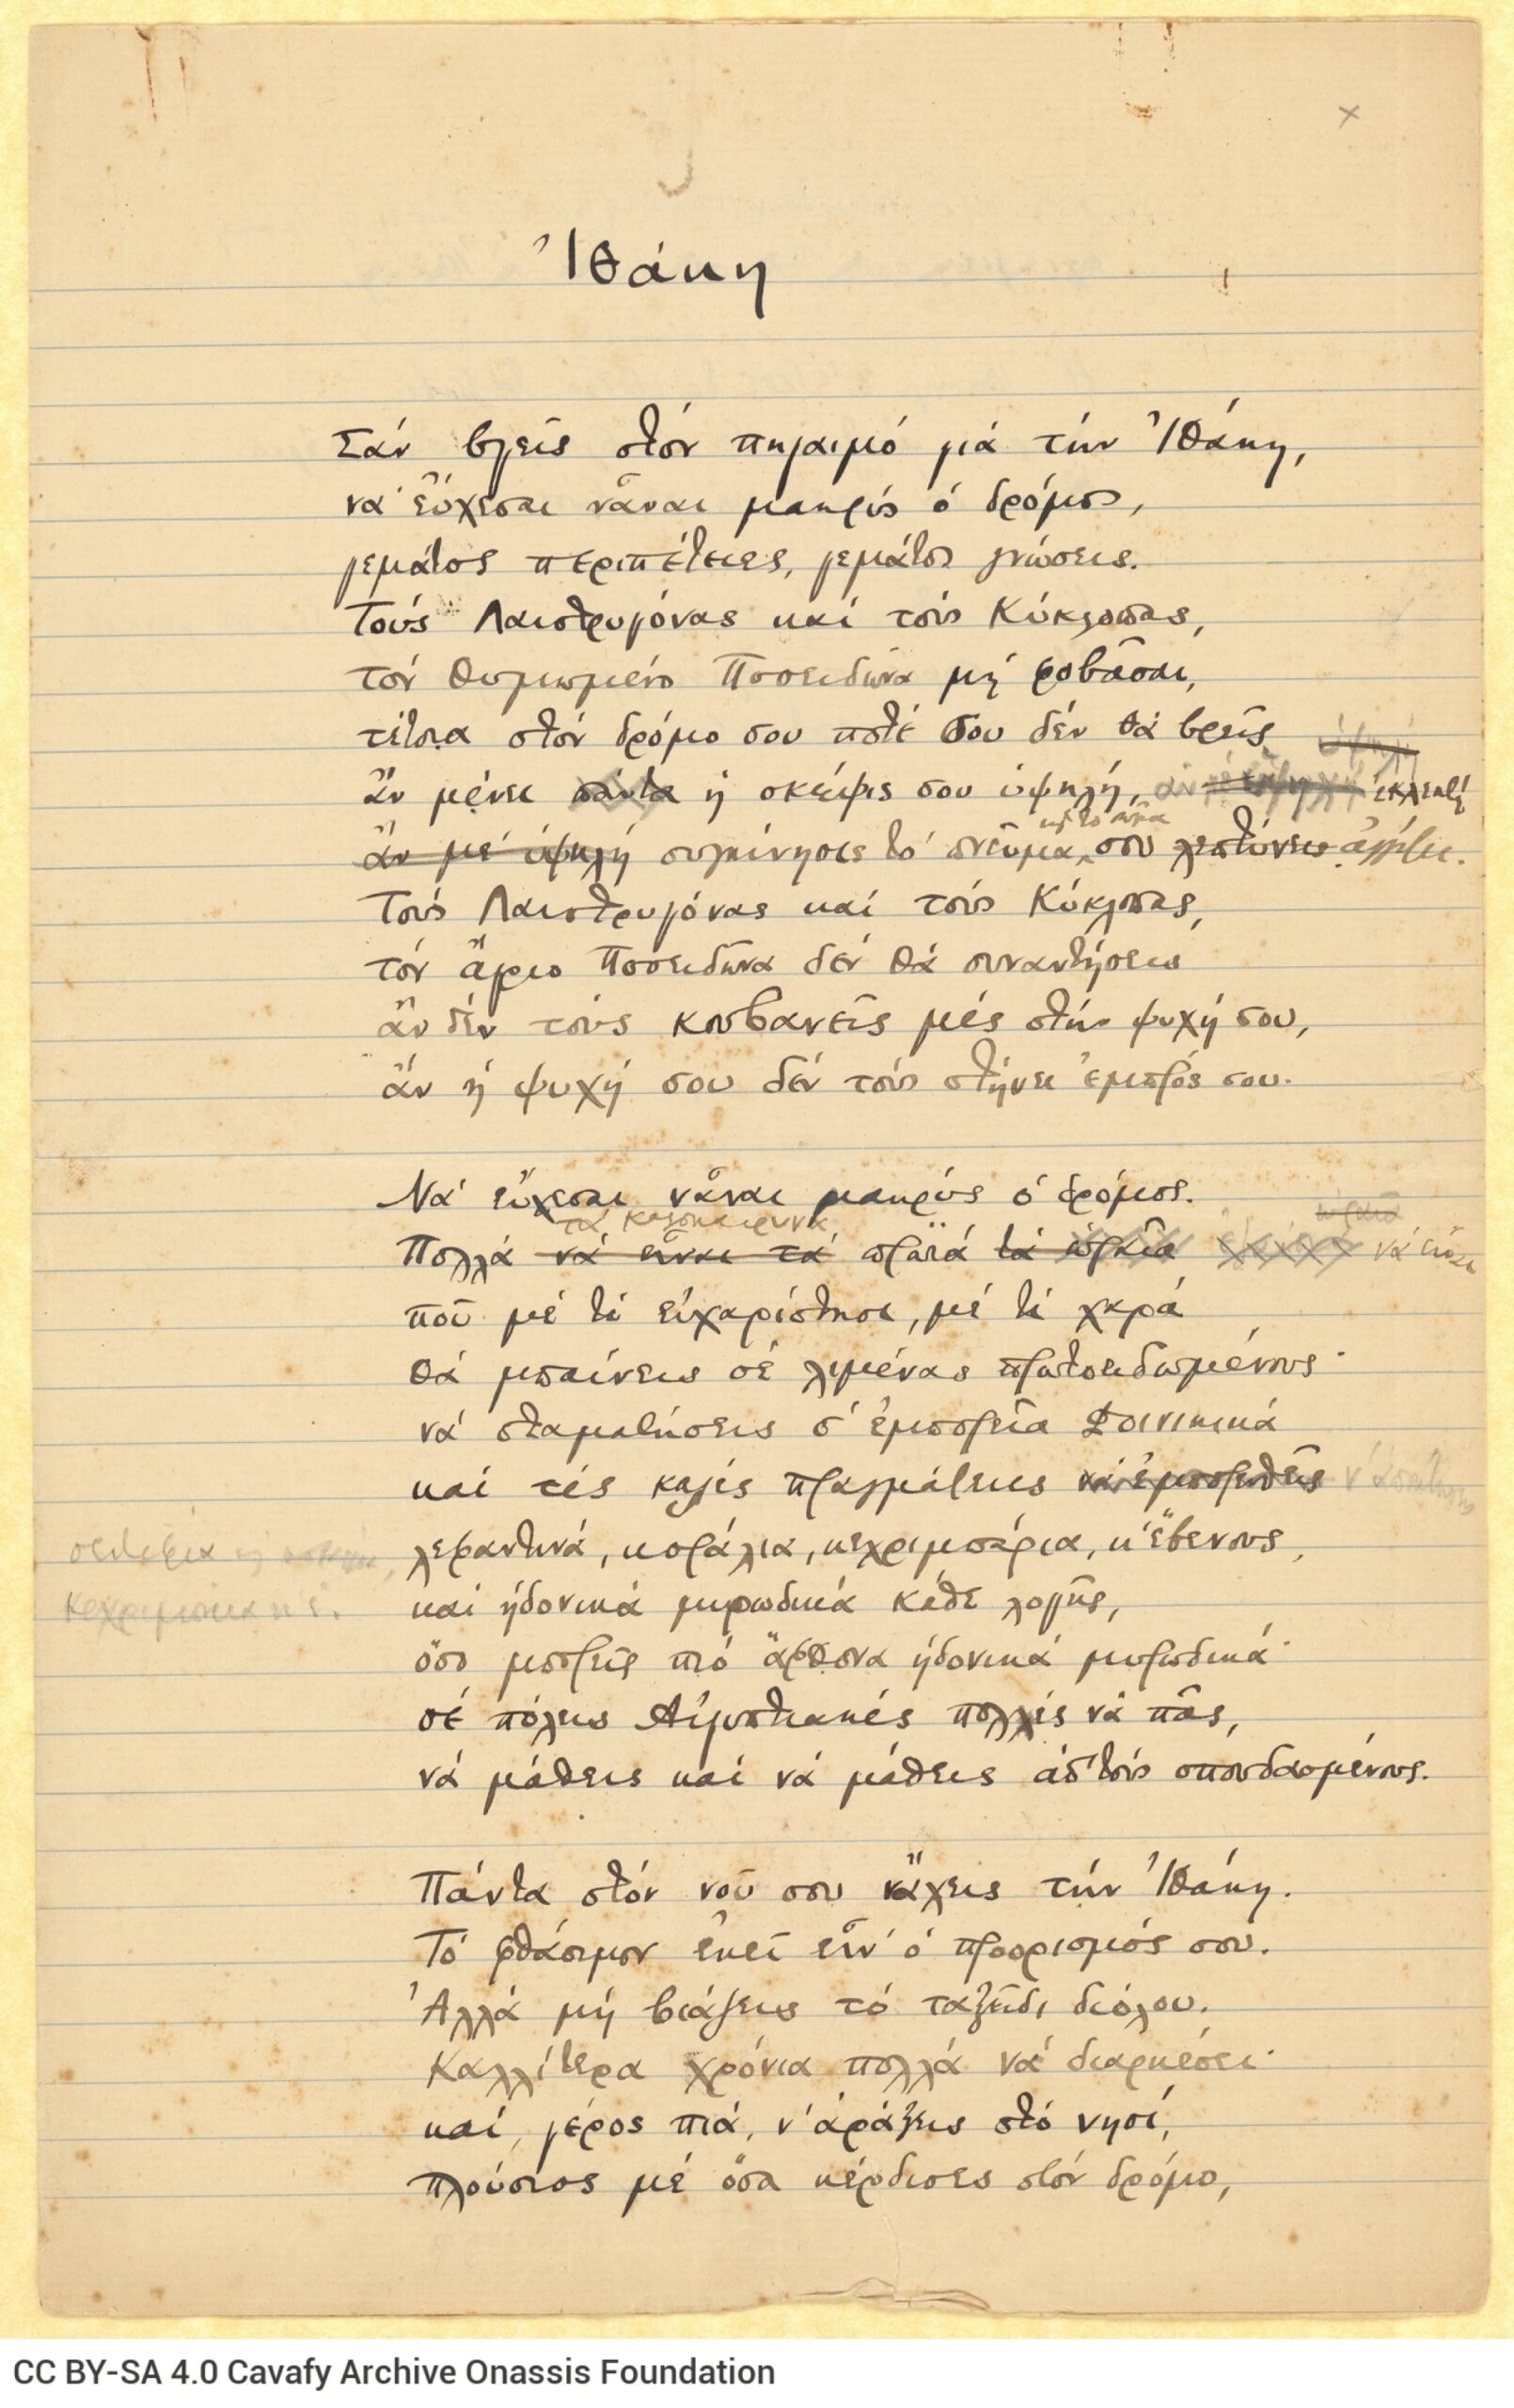 Ἰθάκη
Σάν βγεῖς στόν πηγαιμό γιά τήν Ἰθάκη,
νά εὔχεσαι νἆναι μακρύς ὁ δρόμος,
γεμάτος περιπέτειες, γεμάτος γνώσεις.
Τούς Λαιστρυγόνας καί τούς Κύκλωπας,
τόν θυμωμένο Ποσειδῶνα μή φοβᾶσαι,
τέτοια στόν δρόμο σου ποτέ σου δέν θά βρεῖς
ὑψηλή
ἄν μένει πάντα ἡ σκέψις σου ὑψηλή, ἄν ἐκλεκτή
κ︀αί τό σῶμα
ἄν μέ ὑψηλή συγκίνησις τό πνεῦμα σου λεπτύνεις ἀγγίζει.
Τούς Λαιστρυγόνας καί τούς Κύκλωπας,
τόν ἄγριο Ποσειδῶνα δέν θά συναντήσεις
ἄν δέν τούς κουβανεῖς μές στήν ψυχή σου,
ἄν ἡ ψυχή σου δέν τούς στήνει ἐμπρός σου.
Νά εὔχεσαι νἆναι μακρύς ὁ δρόμος.
τά καλοκαιρινά ὡραῖα
Πολλά νά εἶναι τά πρωϊά τά ὡραῖα νά εἶναι
ποῦ μέ τί εὐχαρίστησι, μέ τί χαρά
θά μπαίνεις σέ λιμένας πρωτοειδωμένους·
νά σταματήσεις σ' ἐμπορεῖα Φοινικικά
καί τές καλές πραγμάτειες νά ἐμπορευθεῖς ν' ἀποκτήσεις
σεντέφια
λεφαντινά, κοράλια, κεχριμπάρια, κ' ἔβενους,
καί ἡδονικά μυρωδικά κάθε λογῆς,
ὅσο μπορεῖς πιό ἄφθονα ἡδονικά μυρωδικά·
σέ πόλεις Αἰγυπτιακές πολλές νά πᾶς,
νά μάθεις καί νά μάθεις ἀπ' τούς σπουδασμένους.
Πάντα στόν νοῦ σου νἄχεις τήν Ἰθάκη.
Τό φθάσιμον ἐκεῖ εἶν' ὁ προορισμός σου.
Ἀλλά μή βιάζεις τό ταξεῖδι διόλου.
Καλλίτερα χρόνια πολλά νά διαρκέσει·
καί, γέρος πιά, ν' ἀράξεις στό νησί,
πλούσιος μέ ὅσα κέρδισες στόν δρόμο,
CC BY-SA 4.0 Cavafy Archive Onassis Foundation